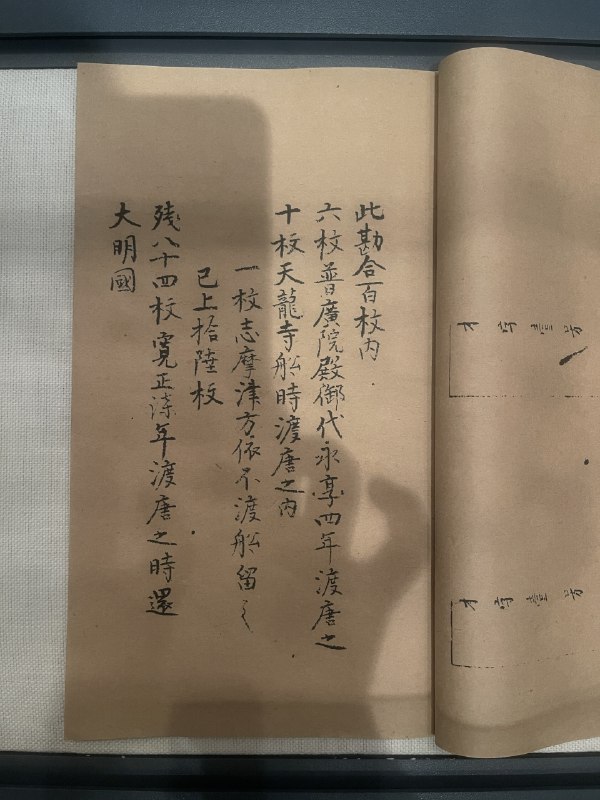 此勘合百枚内
六枚普廣院殿御代永享四年渡唐之
十枚天龍寺船時渡唐之内
一枚志摩津方依不渡船留之
已上拾陸枚
残八十四枚寛正年渡唐之時還
大明國